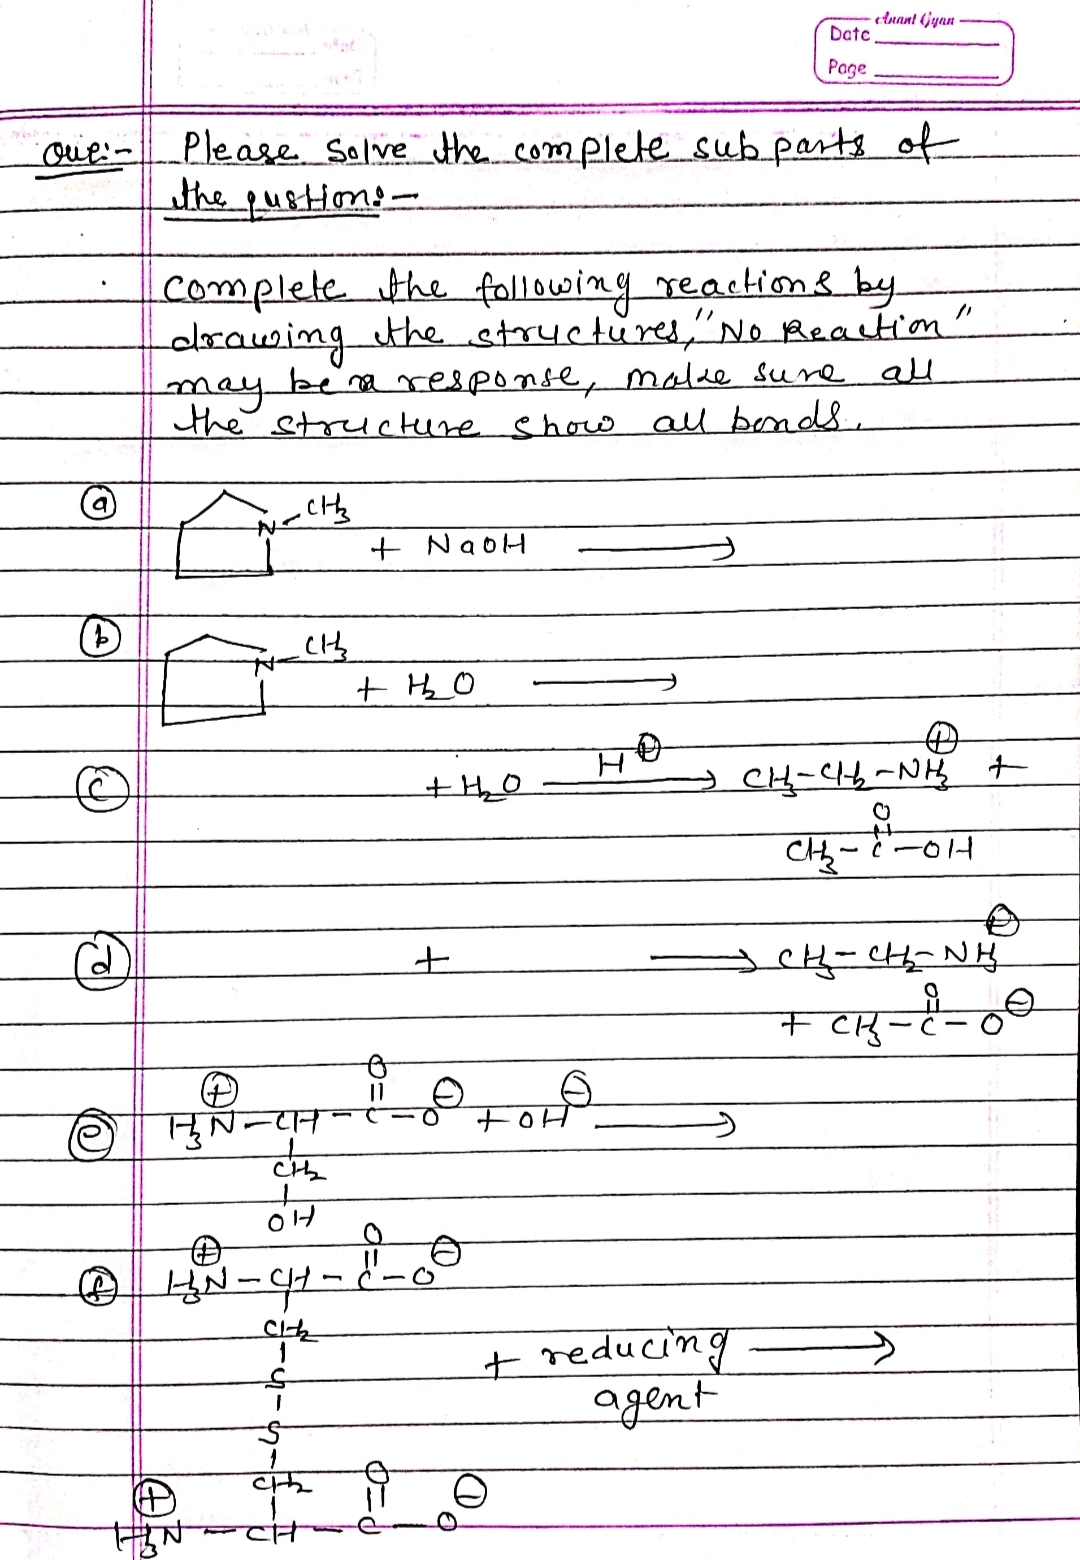 Anant Gyan
Date
Page
Que:- Please solve the complete sub parts of
the qustion:-
complete the following reactions by
drawing the structures, "No Reaction"
may be a response, make sure all
the structure show all bonds.
(a) N-CH3 + NaOH →
(b) N-CH3 + H2O →
(c) + H2O H⊕ → CH3-CH2-NH3 ⊕ +
CH3-C-OH
O
(d) + → CH3-CH2-NH3 ⊕
+ CH3-C-O ⊖
O
(e) H3N ⊕ -CH-C-O ⊖ + OH ⊖ →
O
CH2
OH
(f) H3N ⊕ -CH-C-O ⊖
O
CH2
S
+ reducing →
agent
S
CH2
H3N ⊕ -CH-C-O ⊖
O